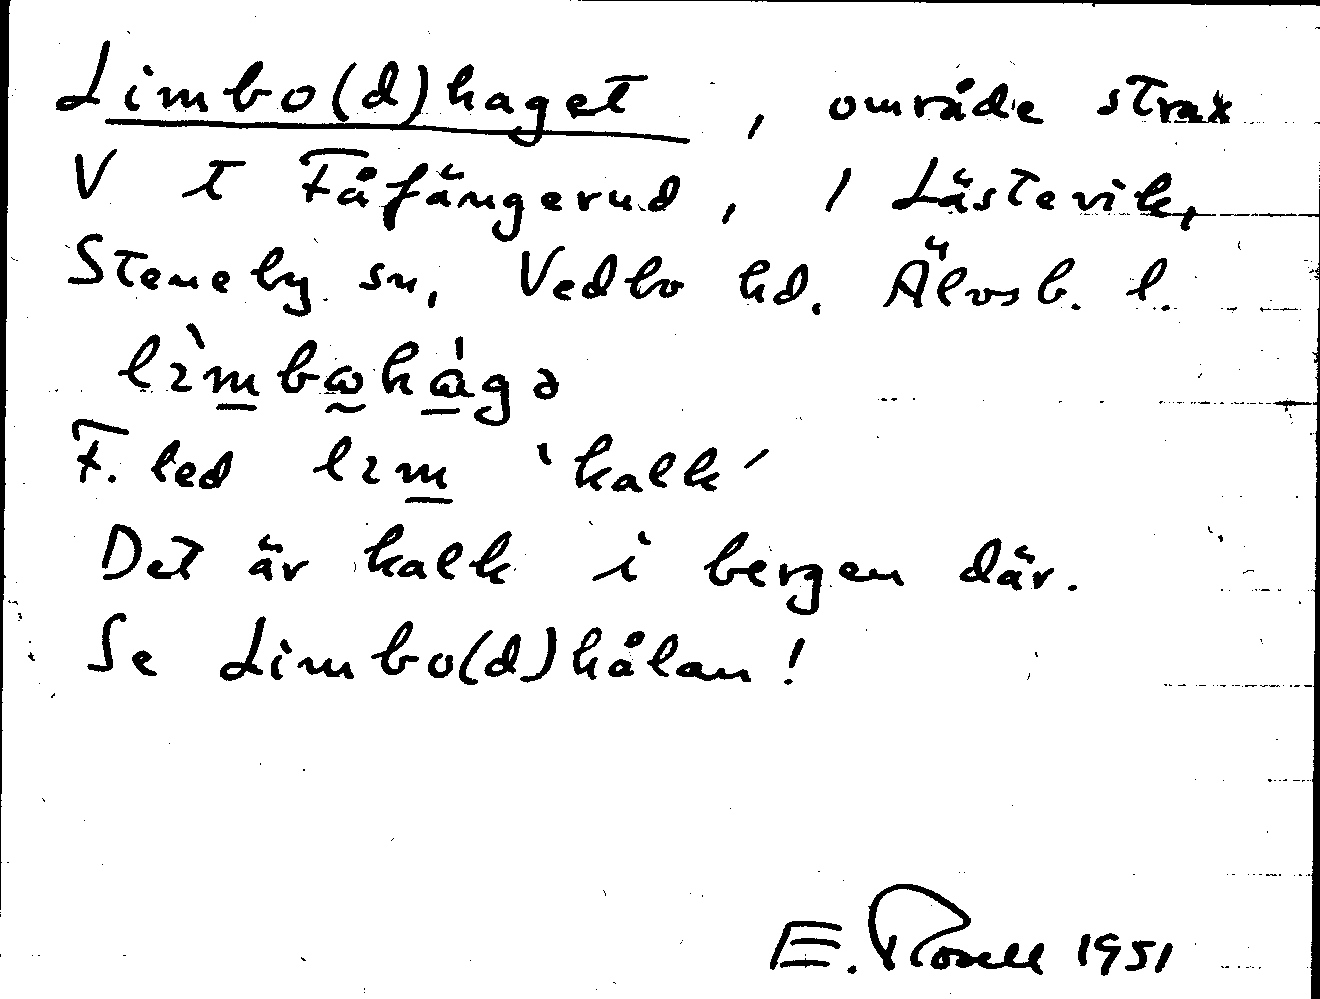 Limbo(d)haget, område strax
V t Fåfängerud, 1 Lästevik,
Steneby sn, Vedbo hd. Älvsb. l.
lìmbωhàgə
F. led lım 'kalk'
Det är kalk i bergen där.
Se Limbo(d)hålan!
E. Rosell 1951